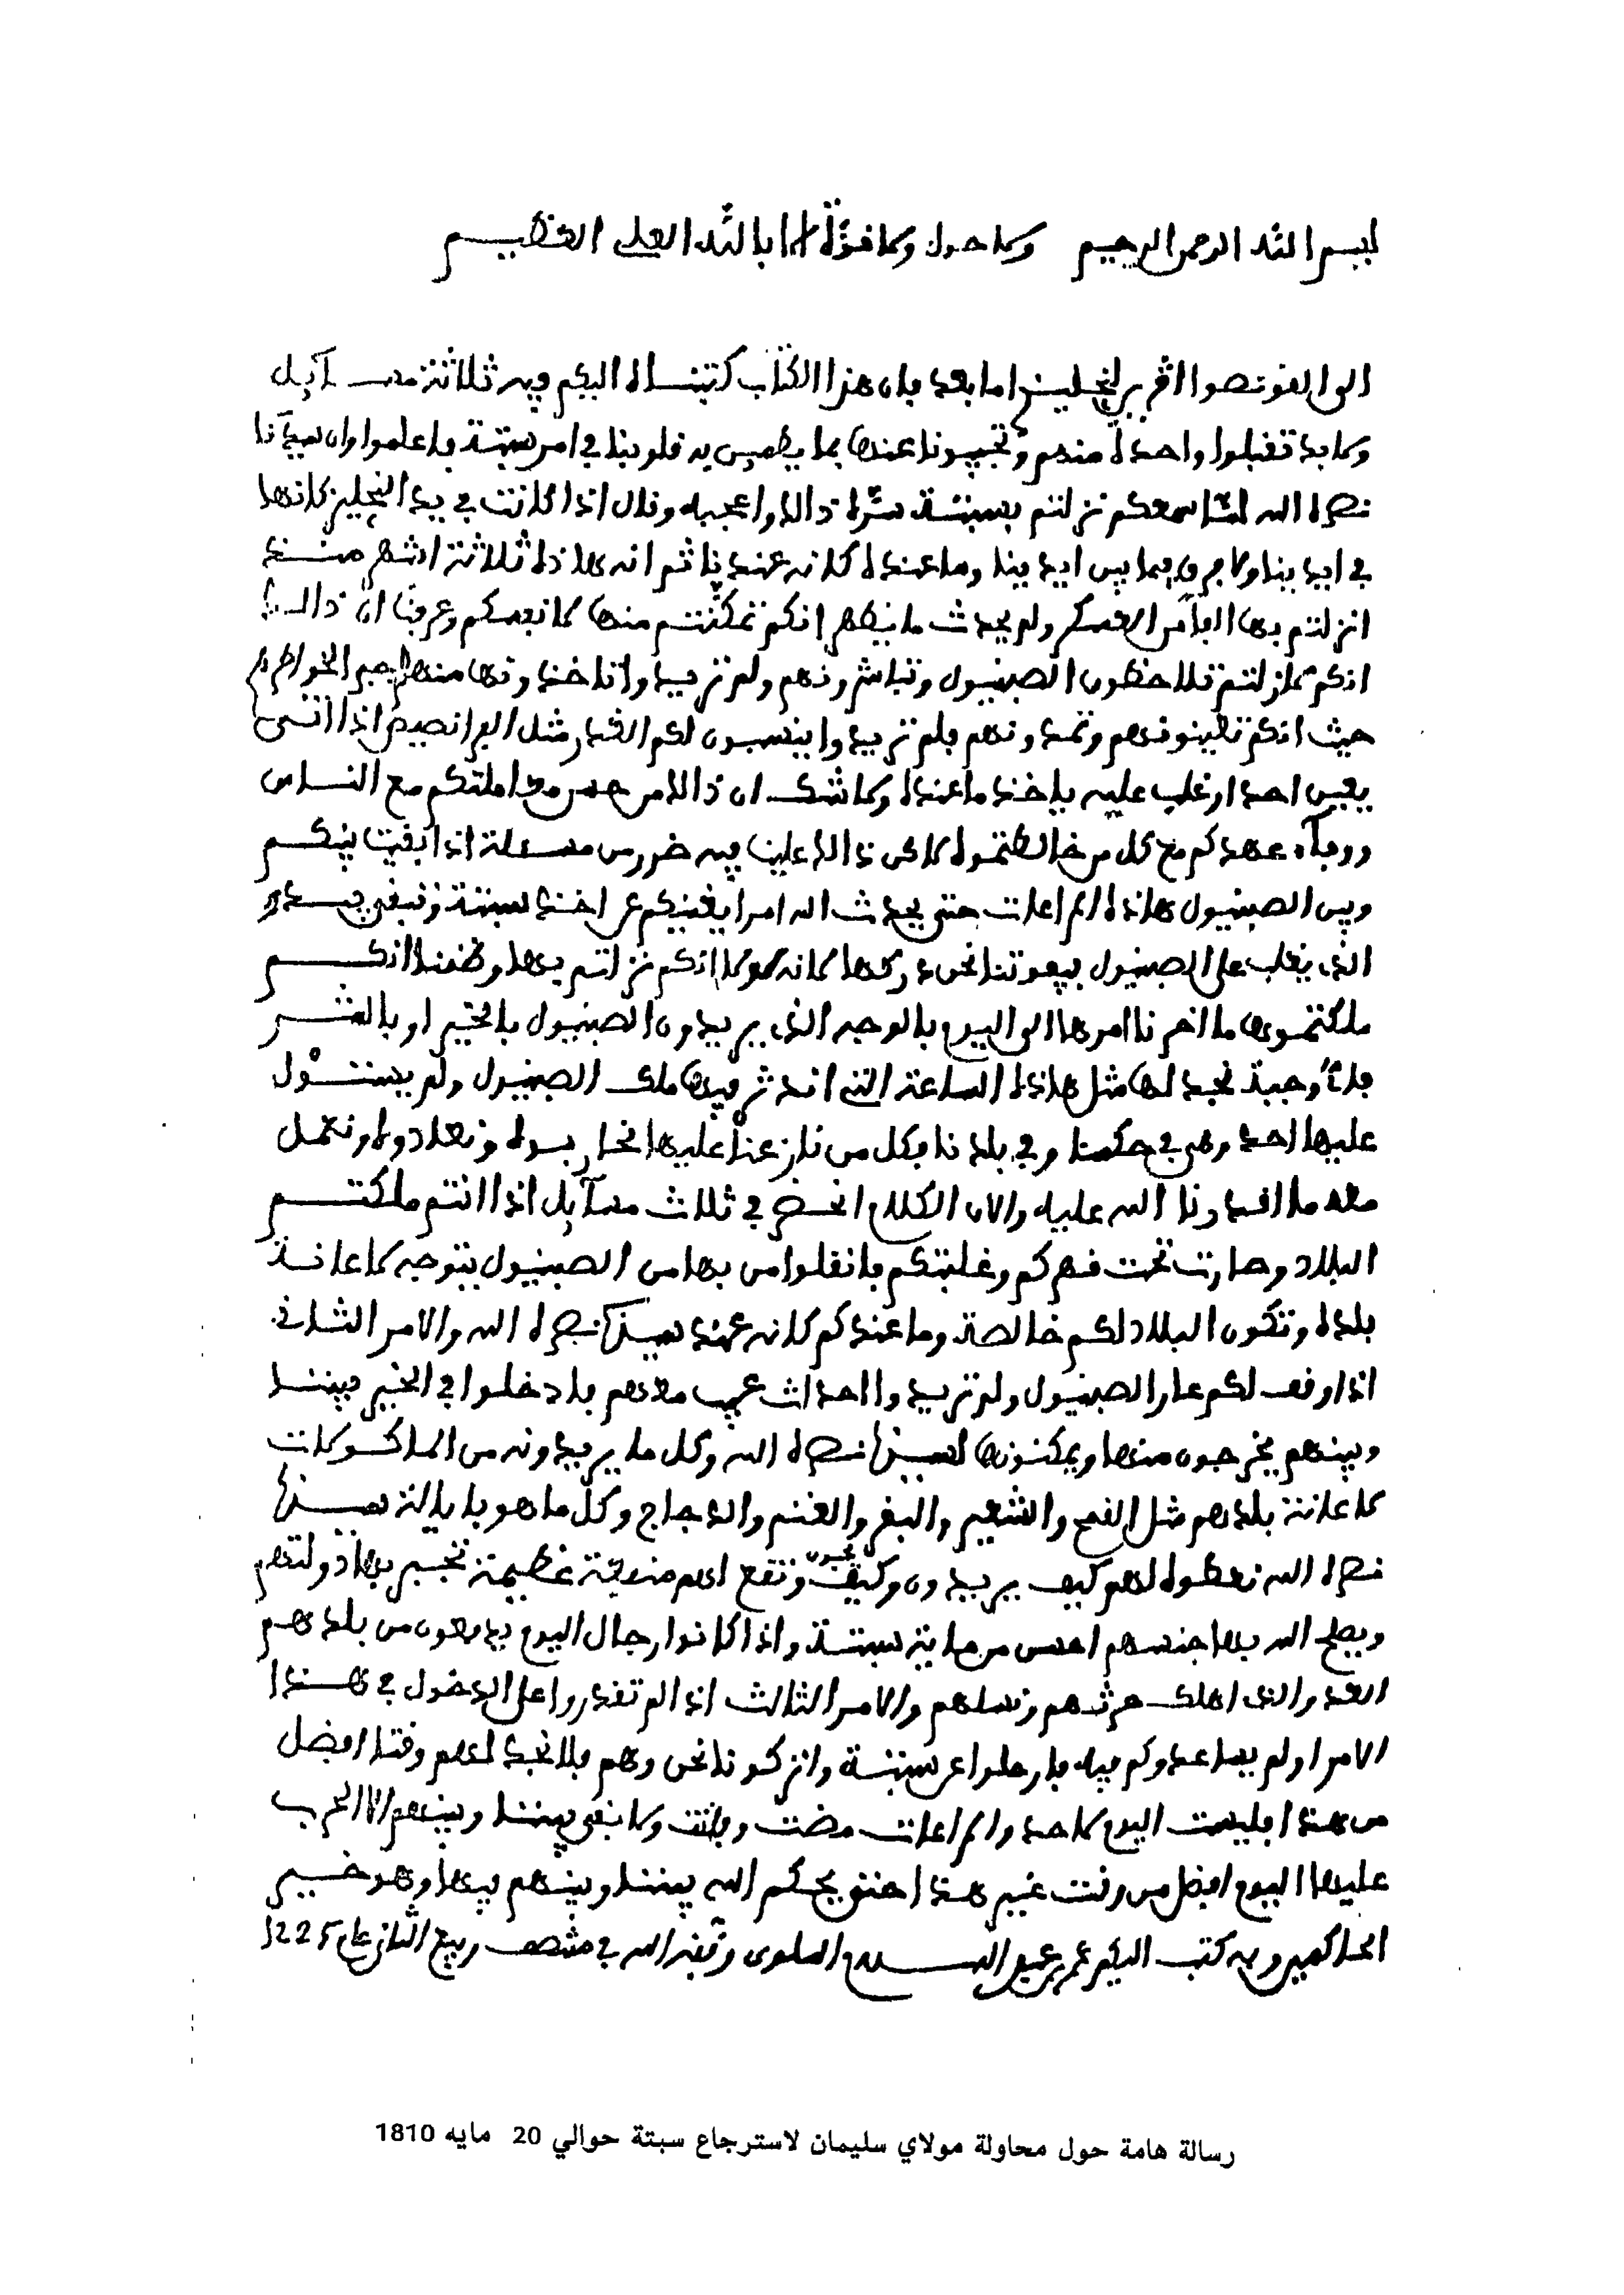 بسم الله الرحمن الرحيم ولا حول ولا قوة الا بالله العلي العظيم
الى القونصوا اكرين النجليز اما بعد فان هذا الكتاب كتبناه اليكم فيه ثلاثة مسآيل
ولا بد تقبلوا واحدة منهم وتجيبونا عنها بما يطمين به قلوبنا في امر سبتة فاعلموا وان سيدنا
نصره الله لما سمعكم نزلتم بسبتة سره ذالك واعجبه وقال اذا كانت في يد النجليز كانها
في ايدينا ولا فرق فيما بين ايدينا وما عنده كانه عندنا ثم انه هاذه ثلاثة اشهر منذ
انزلتم بها العسكر ولم يحدث ما يظهر انكم تمكنتم منها لانفسكم وعرفنا ان ذالك
انكم مازلتم تلاحظون الصبنيول وتباشرونهم ولم تريدوا تاخذونها منهم لجبر الخواطر
حيث انكم تعينوهم وتمدونهم فلم تريدوا ينسبون لكم الغدر مثل الفرانصيص اذا اتى
يعين احدا وغلب عليه ياخذ ما عنده ولا شك ان ذالك من حسن معاملتكم مع الناس
ووفآء عهدكم مع كل من خالطتموه لاكن ذالك علينا فيه ضرر من مسئلة اذا بقيت بينكم
وبين الصبنيول هاذه المراعات حتى يحدث الله امرا يغنيكم عن اخذ سبتة وتبقى بيد
الذي يغلب على الصبنيول فيفوتنا نحن دركها لانه لولا انكم نزلتم بها وظننا انكم
ملكتموها ما اخرنا امرها الى اليوم بالوجه الذي يريدون الصبنيول بالخير او بالشر
فاي وجبة نجد لها مثل هاذه الساعة التي اندثر فيها ملك الصبنيول ولم يستول
عليها احد وهي في حكمنا وفي بلدنا فكل من نازعنا عليها نحاربوه ونعادوه ونعمل
معه ما اقدرنا الله عليه والان الكلام انحصر في ثلاث مسآيل اذا انتم ملكتم
البلاد وصارت تحت قهركم وغلبتكم فانقلوا من بها من الصبنيول يتوجه لاعانة
بلده وتكون البلاد لكم خالصة وما عندكم كانه عند سيدنا نصره الله والامر الثاني
اذا وقف لكم عار الصبنيول ولم تريدوا احداث عيب معهم فادخلوا في الخير بيننا
وبينهم يخرجون منها ويمكنونها لسيدنا نصره الله وكل ما يريدونه من الماكولات
لاعانة بلدهم مثل القمح والشعير والبقر والغنم والدجاج وكل ما هو بايالة سيدنا
نصره الله نعطوه لهم كيف يريدون وكيف يحبون وتقع لهم منفعة عظيمة تجبر بها دولتهم
ويصلح الله بها جنسهم احسن من ماية سبتة واذا كانوا رجال اليوم يدفعون من بلدهم
العدو الذي اهلك حرثهم ونسلهم والامر الثالث اذا لم تقدروا على الدخول في هذا
الامر او لم يساعدوكم فيه فارحلوا عن سبتة واتركونا نحن وهم فلا نجد لهم وقتا افضل
من هذا فليست اليوم لاحد والمراعات مضت وفاتت ولا بقي بيننا وبينهم الا الحرب
عليها اليوم افضل من وقت غير هذا حتى يحكم الله بيننا وبينهم فيها وهو خير
الحاكمين وبه كتب اليكم عمر بن عبد السلام السلوى وفقه الله في منتصف ربيع الثاني عام 1225
رسالة هامة حول محاولة مولاي سليمان لاسترجاع سبتة حوالي 20 مايه 1810